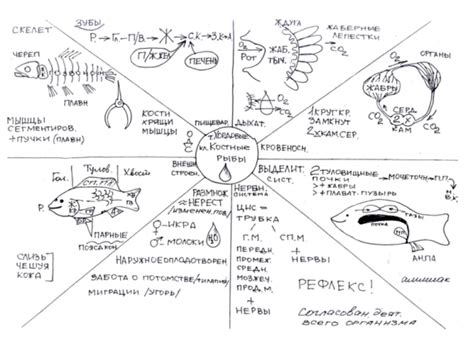 СКЕЛЕТ
ЧЕРЕП
ПЛАВН
МЫШЦЫ
СЕГМЕНТИРОВ.
+ПУЧКИ (ПЛАВН)
КОСТИ
ХРЯЩИ
МЫШЦЫ
ЗУБЫ
Р. → Гл. → П/В. → Ж → С.К → З.К → А
П/ЖЕЛ
ПЕЧЕНЬ
ПИЩЕВАР.
О2
РОТ
ЖАБ.
ТЫЧ.
ЖАБЕРНЫЕ
ЛЕПЕСТКИ
СО2
О2
СО2
ДЫХАТ.
О2
ОРГАНЫ
ЖАБРЫ
О2
СЕРД
2-Х
КАМ
СО2
СО2
1 КРУГ КР.
ЗАМКНУТ
2Х КАМ СЕР.
КРОВЕНОСН.
Т. ХОРДОВЫЕ
КЛ. КОСТНЫЕ
РЫБЫ
ВНЕШН.
СТРОЕН.
Гол.
Тулов.
Хвост
Р.
ПАРНЫЕ
ПОЯСА КОН.
СЛИЗЬ
ЧЕШУЯ
КОЖА
РАЗМНОЖ.
НЕРЕСТ
♀ - ИКРА
♂ МОЛОКИ
Н2О
НАРУЖНОЕ ОПЛОДОТВОРЕН.
ЗАБОТА О ПОТОМСТВЕ /ТИЛАПИЯ/
МИГРАЦИИ /УГОРЬ/
НЕРВН.
СИСТЕМА
ЦНС =
ТРУБКА
Г.М.
СП.М.
ПЕРЕДН.
ПРОМЕЖ.
СРЕДН.
МОЗЖЕЧ.
ПРОД. М.
+
НЕРВЫ
+
НЕРВЫ
РЕФЛЕКС!
Согласован. деят.
всего организма
ВЫДЕЛИТ.
СИСТ.
2 ТУЛОВИЩНЫЕ
ПОЧКИ
> + ЖАБРЫ
> + ПЛАВАТ. ПУЗЫРЬ
→ МОЧЕТОЧН.
М/П.
В.К.
ПОЧКА
ТАЗЫ
АНПА
аммиак